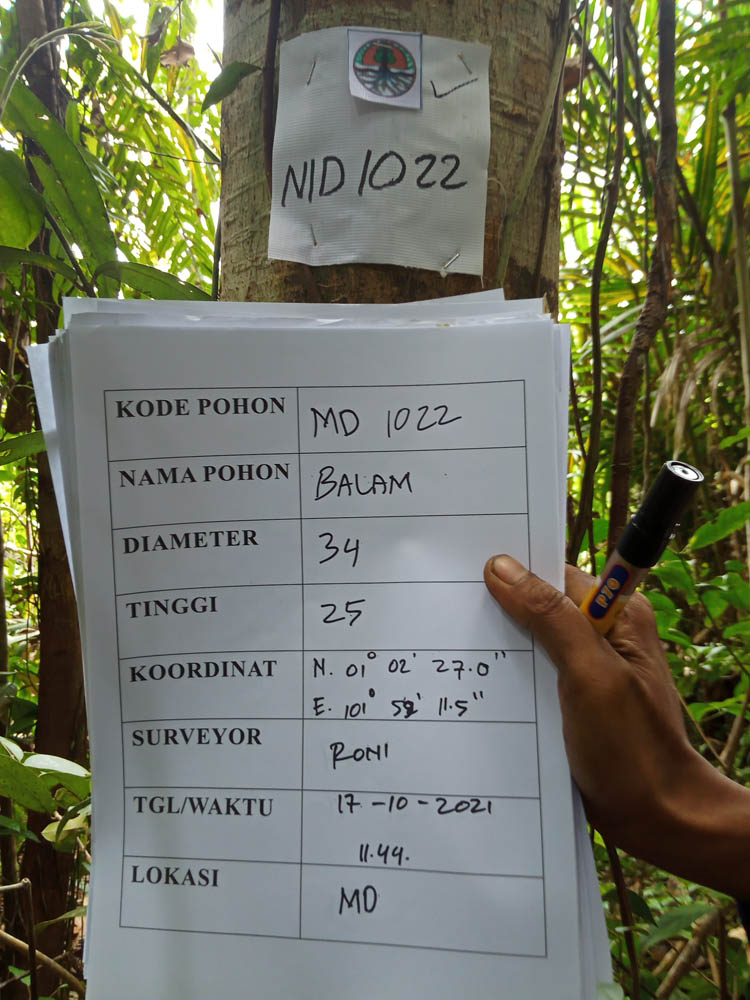 NID 1022
KODE POHON MD 1022
NAMA POHON BALAM
DIAMETER 34
TINGGI 25
KOORDINAT N. 01° 02' 27.0"
E. 101° 52' 11.5"
SURVEYOR RONI
TGL/WAKTU 17-10-2021
11.44.
LOKASI MD